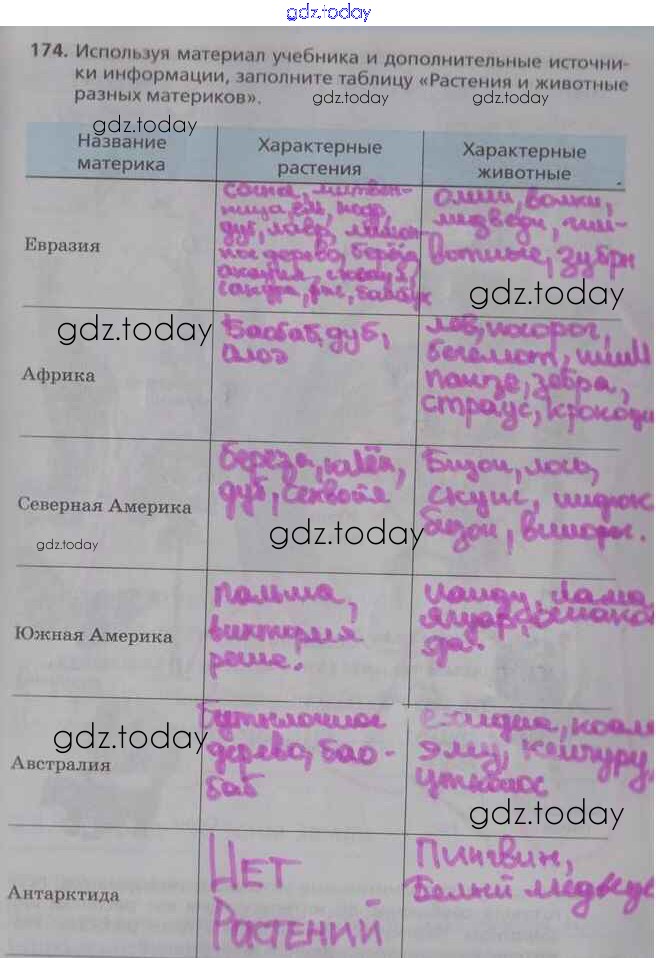 gdz.today
174. Используя материал учебника и дополнительные источни-
ки информации, заполните таблицу «Растения и животные
разных материков».
gdz.today
gdz.today
gdz.today
Название
материка
Характерные
растения
Характерные
животные
Евразия
сосна, листвен-
ница, ель, кедр,
дуб, лавр, лимон-
ное дерево, берёза
акация,
сакура, рис, бамбук
олени, волки,
медведи,
вотные, зубры
gdz.today
gdz.today
Африка
Баобаб, дуб,
алоэ
лев, носорог,
бегемот, шим
панзе, зебра,
страус, крокоди
Северная Америка
gdz.today
береза, клён,
дуб, секвойя
gdz.today
Бизон, лось,
скунс,
бизон,
Южная Америка
пальма,
виктория
реше.
нанду, лама,
ягуар,
Австралия
gdz.today
Бутылочное
дерево, бао-
баб
ехидна, коала
эму, кенгуру,
утконос
gdz.today
Антарктида
НЕТ
РАСТЕНИЙ
Пингвин,
Белый медведь